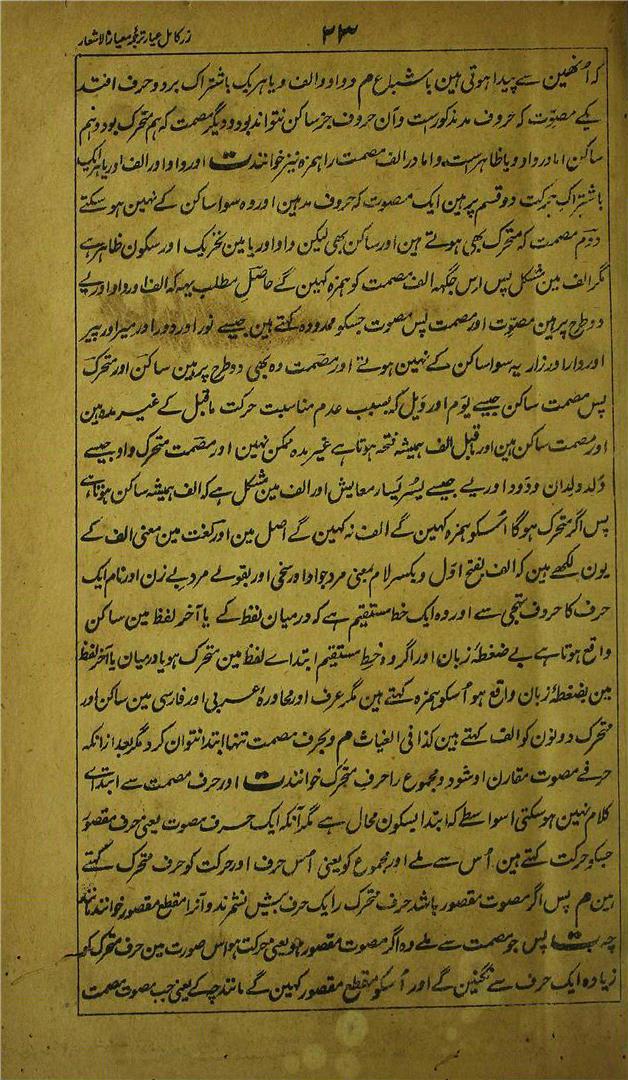 ۲۳
زر کامل عیار ترجمہ معیار الاشعار
کہ انھین سے پیدا ہوتی ہین باشباع م و واو والف و یا ہر یک باشتراک بر دو حرف افتد
یکے مصوّت کہ حروف مد مذکورست و آن حروف جز ساکن نتواند بود و دیگر مصمت کہ ہم متحرک بود و ہم
ساکن اما در واو و یا ظاہر ست و اما در الف مصمت را ہمزہ نیز خوانند ت اور واو اور الف اور یا ہر ایک
باشتراکِ حرکت دو قسم پر ہین ایک مصوت کہ حروف مد ہین اور وہ سوا ساکن کے نہین ہو سکتے
دوّم مصمت کہ متحرک بھی ہوتے ہین اور ساکن بھی لیکن واو اور یا مین تحریک اور سکون ظاہر ہے
مگر الف مین مشکل پس اس جگہہ الف مصمت کو ہمزہ کہین گے حاصل مطلب یہہ کہ الف اور واو اور یے
دو طرح پر ہین مصوّت اور مصمت پس مصوت جسکو ممدودہ کہتے ہین جیسے نور اور دور اور میر اور پیر
اور وار اور زار یہ سوا ساکن کے نہین ہوتے اور مصمت وہ بھی دو طرح پر ہین ساکن اور متحرک
پس مصمت ساکن جیسے یوم اور ویل کہ بسبب عدم مناسبت حرکت ماقبل کے غیر مدہ ہین
اور مصمت ساکن ہین اور ماقبل الف ہمیشہ فتحہ ہوتا ہے غیر مدہ ممکن نہین اور مصمت متحرک واو جیسے
ولد ولدان ودود اور یے جیسے یُسر یسار معایش اور الف مین مشکل ہے کہ الف ہمیشہ ساکن ہوتا ہے
پس اگر متحرک ہوگا اُسکو ہمزہ کہین گے الف نہ کہین گے اصل مین اور لغت مین معنی الف کے
یون لکھے ہین کہ الف بفتح اوّل و بکسر لام بمعنی مرد جواد اور سخی اور بقولے مرد بے زن اور نام ایک
حرف کا حروف تہجی سے اور وہ ایک خط مستقیم ہے کہ درمیان لفظ کے یا آخر لفظ مین ساکن
واقع ہوتا ہے بے ضغطۂ زبان اور اگر وہ خط مستقیم ابتداے لفظ مین متحرک ہو یا درمیان یا آخر لفظ
مین بضغطۂ زبان واقع ہو اُسکو ہمزہ کہتے ہین مگر عرف اور محاورۂ عربی اور فارسی مین ساکن اور
متحرک دونون کو الف کہتے ہین کذا فی الغیاث م و بحرف مصمت تنہا ابتدا نتوان کرد مگر بعد ازانکہ
حرفے مصوت مقارن او شود و مجموع را حرفِ متحرک خوانند ت اور حرف مصمت سے ابتداے
کلام نہین ہو سکتی اسواسطے کہ ابتدا بسکون محال ہے مگر آنکہ ایک حرف مصوت یعنی حرف مقصور
جسکو حرکت کہتے ہین اُس سے ملے اور مجموع کو یعنی اُس حرف اور حرکت کو حرف متحرک کہتے
ہین م پس اگر مصوت مقصور باشد حرف متحرک را یک حرف بیش نشمرند و آنرا مقطع مقصور خوانند مانند
چہ ت پس جو مصمت سے ملے وہ اگر مصوت مقصور ہو یعنی حرکت ہو اس صورت مین حرف متحرک کو
زیادہ ایک حرف سے نگنین گے اور اُسکو مقطع مقصور کہین گے مانند چہ کے یعنی جب مصوت مصمت